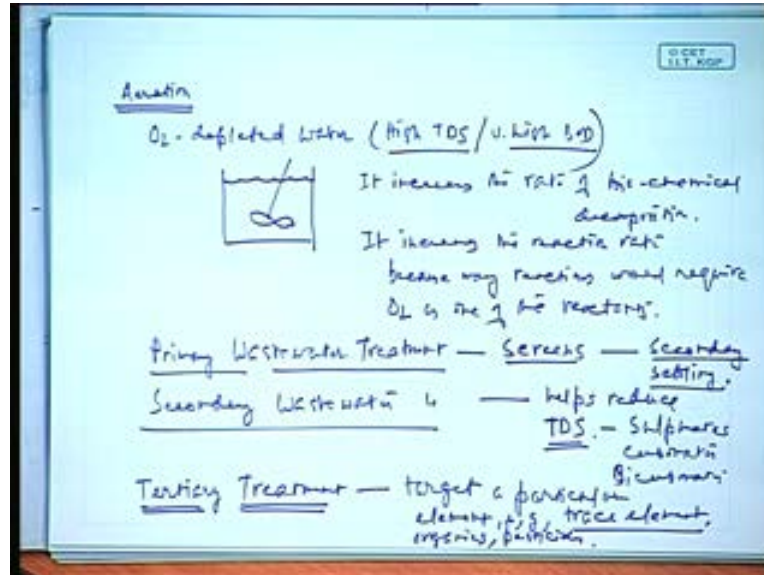 © CET
I.I.T. KGP
Aeration
O2 - depleted water (High TDS / v. high BOD)
It increases the rate of bio-chemical
decomposition.
It increases the reaction rate
because many reactions would require
O2 as one of the reactants.
Primary Wastewater Treatment — Screens — Secondary
settling.
Secondary Wastewater " — helps reduce
TDS. — Sulphates
Carbonates
Bicarbonates
Tertiary Treatment — target a particular
element, e.g. trace element,
organics, pesticides.